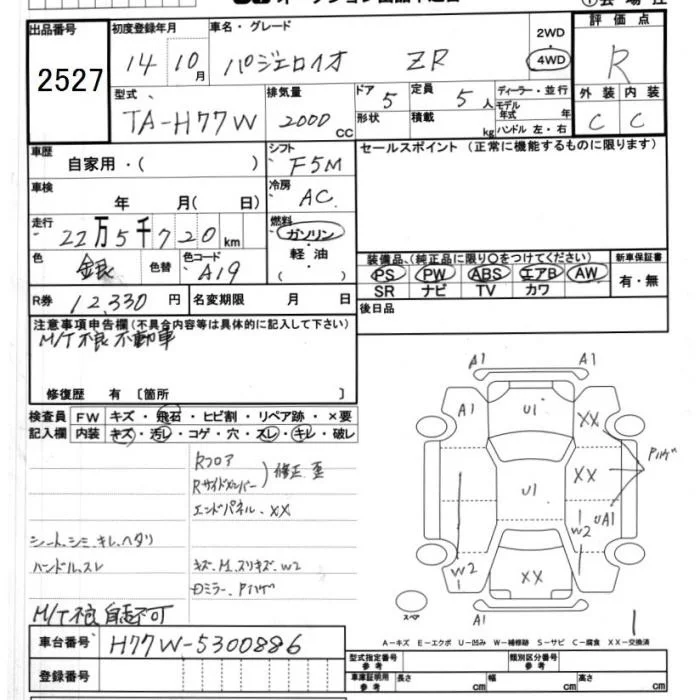 出品番号 初度登録年月 車名・グレード 2WD 評価点
2527 14 10月 パジェロイオ ZR 4WD R
型式 排気量 ドア 定員 ディーラー・並行 外装 内装
TA-H77W 2000 CC 5 5人 モデル年式 年 C C
形状 積載 kg ハンドル 左・右
車歴 シフト セールスポイント (正常に機能するものに限ります)
自家用・( ) F5M
車検 冷房
年 月( 日) AC
走行 燃料
22万5千720km ガソリン
色 色替 色コード 軽油
銀 A19 ( )
装備品、(純正品に限り○をつけてください) 新車保証書
PS PW ABS エアB AW 有・無
SR ナビ TV カワ
R券 12,330円 名変期限 月 日 後日品
注意事項申告欄 (不具合内容等は具体的に記入して下さい)
M/T不良 不動車
修復歴 有 [箇所 ]
検査員 FW キズ・飛石・ヒビ割・リペア跡・×要
記入欄 内装 キズ・汚レ・コゲ・穴・スレ・キレ・破レ
Rフロア
Rサイドメンバー ) 修正 歪
エンドパネル、XX
シート、シミ、キレ、ヘタリ
ハンドル、スレ キズ、M、スリキズ、W2
Dミラー、Pハゲ
M/T不良 自走不可
A1 A1
A1 U1 XX
XX Pハゲ
U1
W2 UA1
W2 XX
スペア A1 1
A-キズ E-エクボ U-凹み W-補修跡 S-サビ C-腐食 XX-交換済
車台番号 H77W-5300886
登録番号
型式指定番号 参考 類別区分番号 参考
車庫証明用 参考 長さ cm 幅 cm 高さ cm